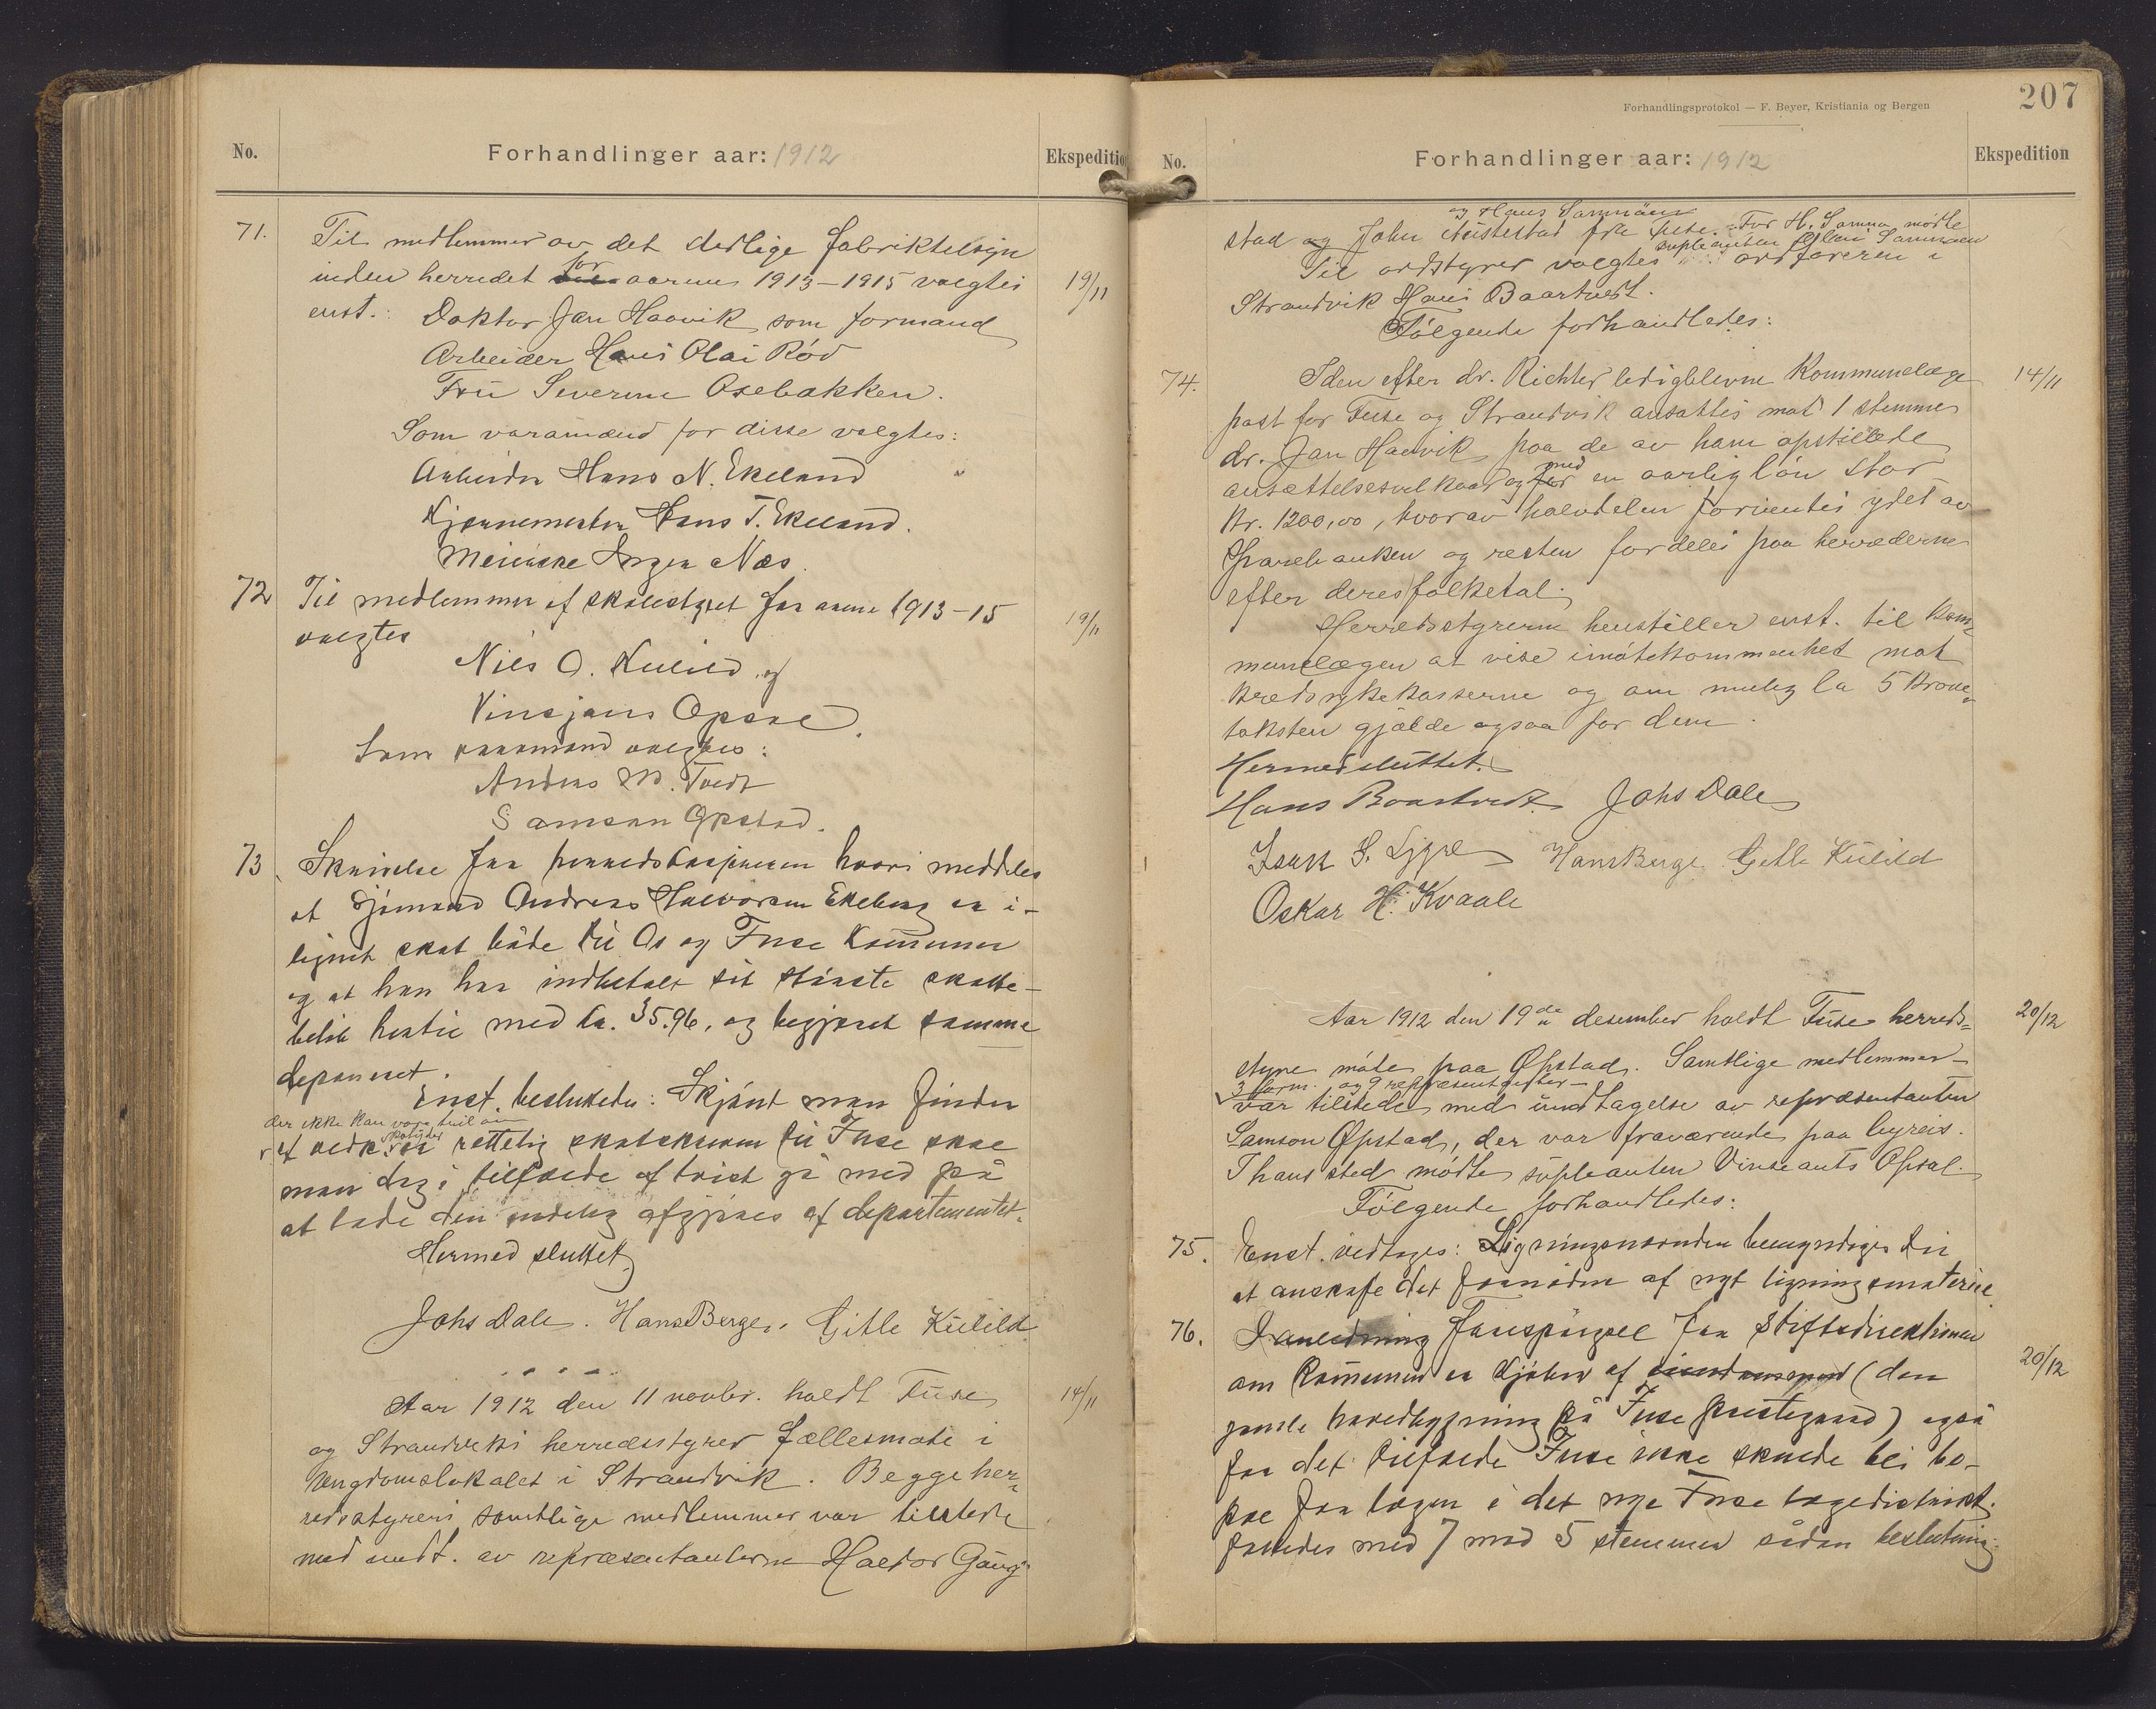 No.
Forhandlinger aar: 1912
Ekspeditio
71.
Til medlemmer av det stedlige fabriktilsyn
inden herredet for aarene 1913–1915 valgtes
19/11
enst.: Doktor Jan Haavik som formand
Arbeider Hans Olai Röd
Fru Severine Osebakken.
Som varamænd for disse valgtes:
Arbeider Hans N. Ekeland
Hans T. Ekeland.
Meierske Inger Næs.
72
Til medlemmer af skolestyret for aarene 1913–15
19/11
valgtes
Nils O. Kulild og
Vinsjans Opsal
Som varamænd valgtes:
Anders M. Tvedt
Samson Opstad.
73.
Skrivelse fra herredskasjereren hvori meddeles
at Sjömand Andreas Halvorsen Ekeberg er i-
lignet skat både til Os og Fuse kommuner
og at han har indbetalt sit störste skatte-
beløb hertil med kr. 35.96, og begjæret samme
deponeret.
Enst. besluttedes: Skjönt man finder
der ikke kan være tvil om
at vedk. skatyder er rettelig skatskreven til Fuse skal
man dog i tilfælde af tvist gå med på
at lade den endelig afgjöres af departementet.
Hermed sluttet
Johs Dale. Hans Berge. Gitle Kulild
Aar 1912 den 11 novbr. holdt Fuse
14/11
og Strandviks herredsstyrer fællesmöte i
ungdomslokalet i Strandvik. Begge her-
redsstyrers samtlige medlemmer var tilstede
med undt. av repræsentanterne Haldor Gäng-
Forhandlingsprotokol — F. Beyer, Kristiania og Bergen
207
No.
Forhandlinger aar: 1912
Ekspedition
og Hans Samnöen
stad og John fra Fuse. For H. Samnø mötte
supleanten Samnøen
Til ordstyrer valgtes ordføreren i
Strandvik Hans Baartvedt.
Følgende forhandledes:
74.
I den efter dr. Richter ledigblevne Kommunelæge
14/11
post for Fuse og Strandvik ansattes mot 1 stemme
dr. Jan Haavik paa de av ham opstillede
ansættelsesvilkaar og med en aarlig lön stor
Kr. 1200,00, hvorav halvdelen forventes ydet av
Sparebanken og resten fordeles paa herrederne
efter deres folketal.
Herredsstyrerne henstiller enst. til kom-
munelægen at vise imötekommenhet mot
kredssykekasserne og om mulig la 5 krone-
taksten gjælde ogsaa for dem.
Hermed sluttet.
Hans Baartvedt Johs Dale
Isak S. Hans Berge. Gitle Kulild
Oskar H. Kvaale
Aar 1912 den 19de desember holdt Fuse herreds-
20/12
styre möte paa Øpstad. Samtlige medlemmer
3 form. og 9 repræsentanter
var tilstede med undtagelse av repræsentanten
Samson Øpstad, der var fraværende paa byreis.
I hans sted mötte supleanten Vinseants Opsal.
Følgende forhandledes:
75.
Enst. vedtages: Ligningsnævnden bemyndiges til
at anskafe det fornödne af nyt ligningsmateriel.
76.
I anledning Forespörgsel fra Stiftsdirektionen
om Kommunen er kjöber af (den
20/12
gamle hovedbygning på Fuse prestegaard) også
for det tilfælde Fuse ikke skulde bli bo-
pæl for lægen i det nye Fuse lægedistrikt.
fattedes med 7 mod 5 stemmer sådan beslutning: